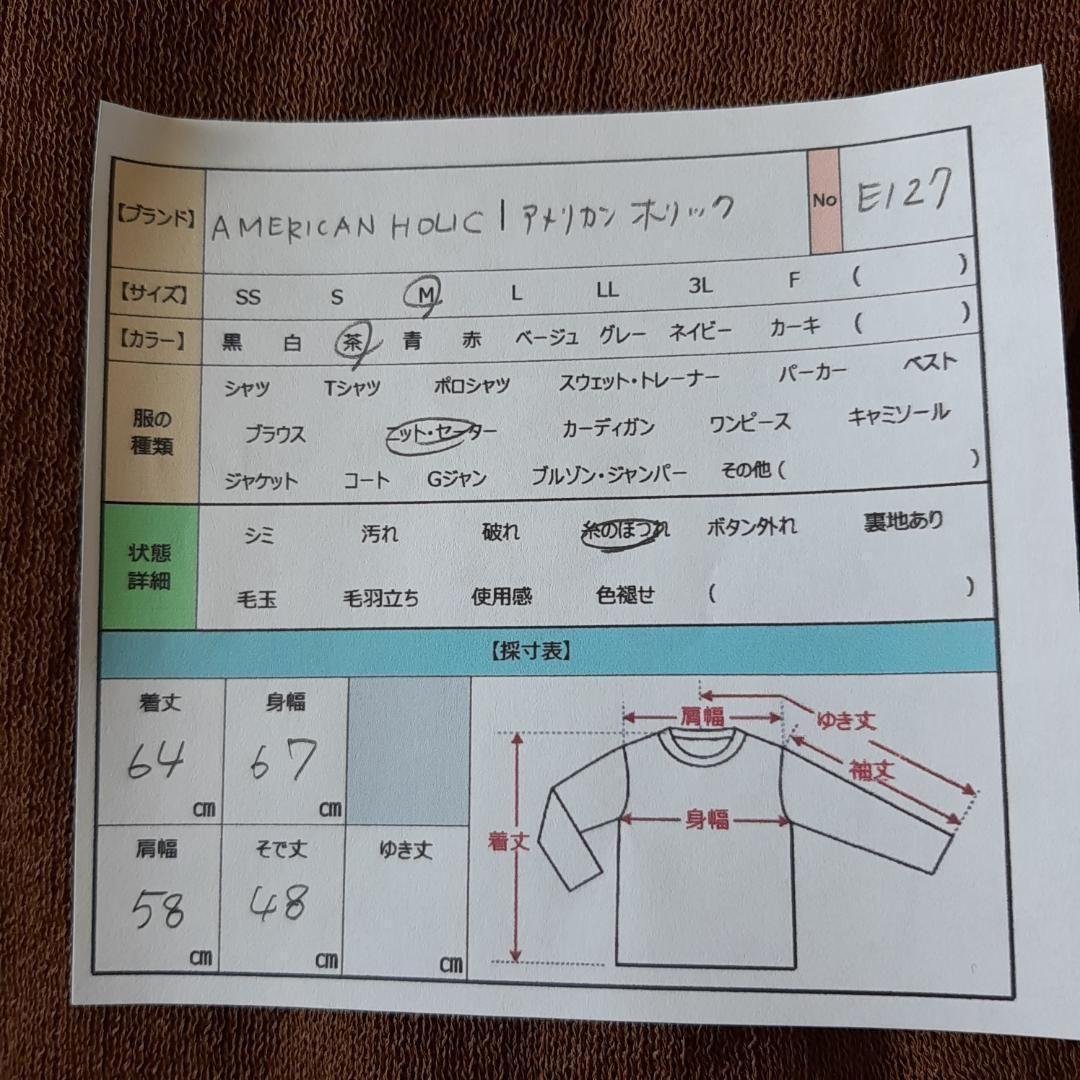 【ブランド】 AMERICAN HOLIC | アメリカン ホリック No E127
【サイズ】 SS S M L LL 3L F ( )
【カラー】 黒 白 茶 青 赤 ベージュ グレー ネイビー カーキ ( )
服の種類
シャツ Tシャツ ポロシャツ スウェット・トレーナー パーカー ベスト
ブラウス ニット・セーター カーディガン ワンピース キャミソール
ジャケット コート Gジャン ブルゾン・ジャンパー その他 ( )
状態詳細
シミ 汚れ 破れ 糸のほつれ ボタン外れ 裏地あり
毛玉 毛羽立ち 使用感 色褪せ ( )
【採寸表】
着丈 身幅
64 cm 67 cm
肩幅 そで丈 ゆき丈
58 cm 48 cm cm
肩幅 ゆき丈
袖丈
身幅
着丈